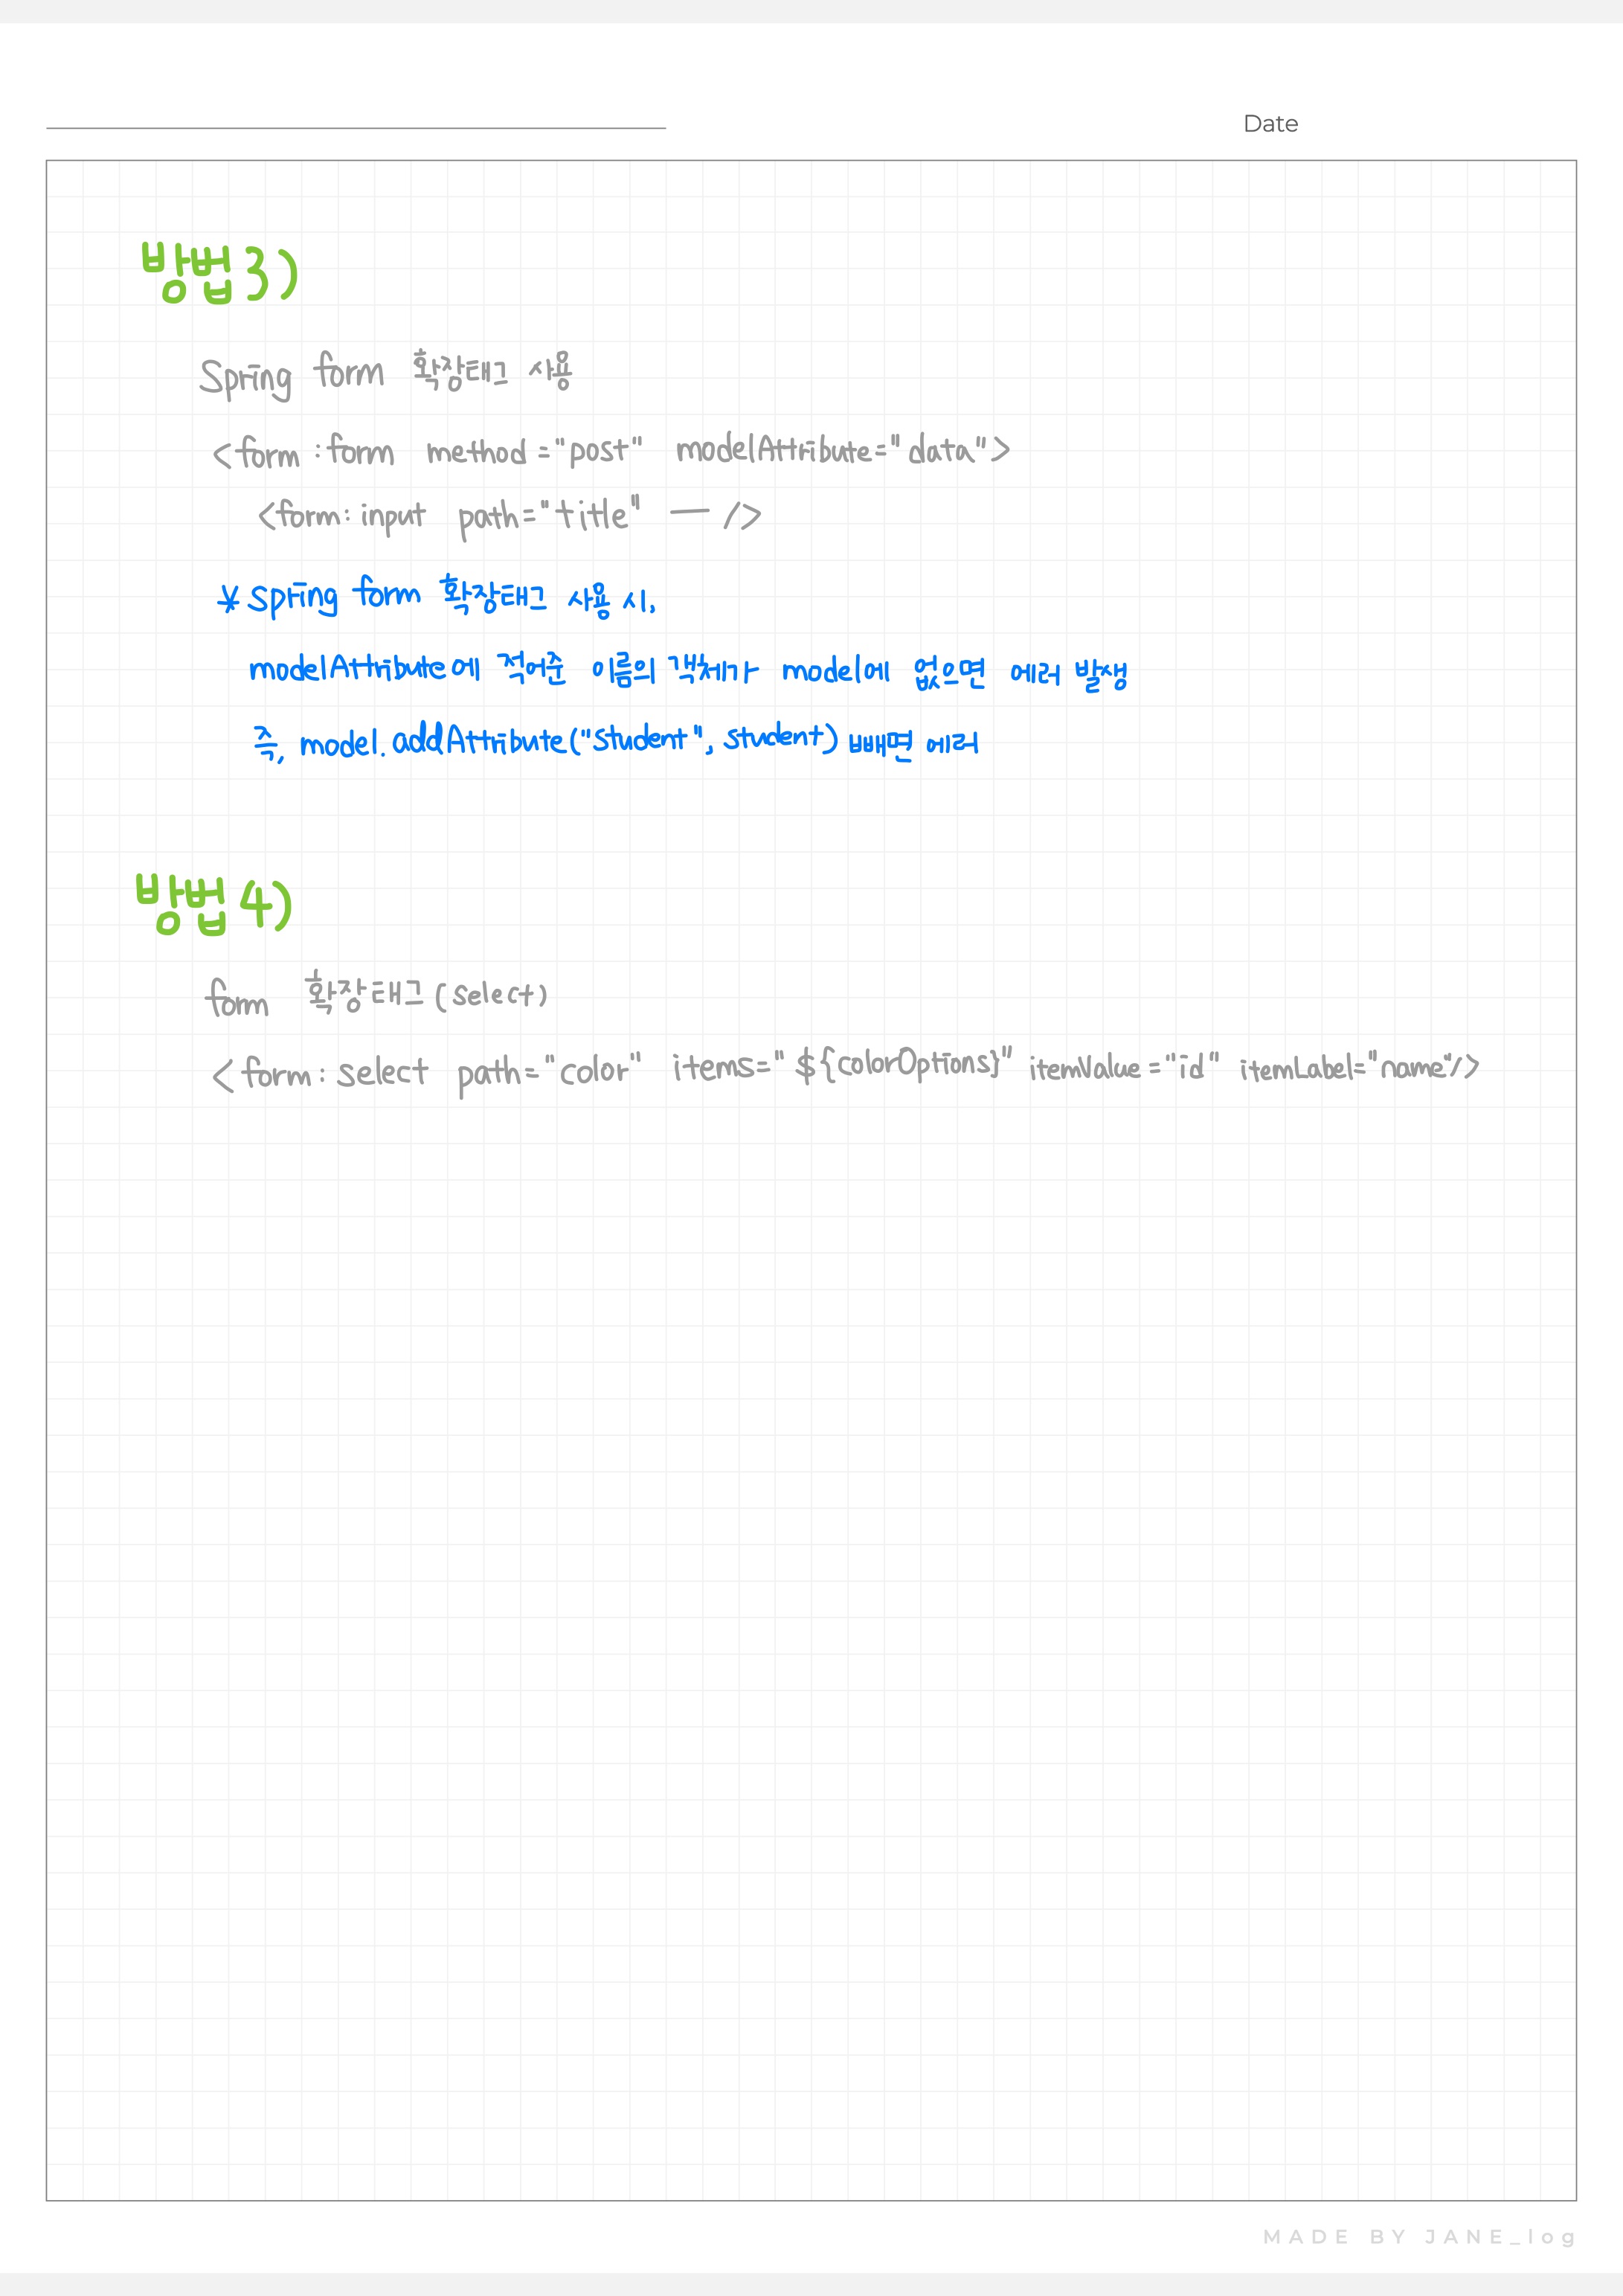 Date
방법3)
Spring form 확장태그 사용
<form:form method="post" modelAttribute="data">
<form:input path="title" — />
* Spring form 확장태그 사용 시,
modelAttribute에 적어준 이름의 객체가 model에 없으면 에러 발생
즉, model.addAttribute("student", student) 빼면 에러
방법4)
form 확장태그(select)
<form:select path="color" items="${colorOptions}" itemValue="id" itemLabel="name"/>
MADE BY JANE_log